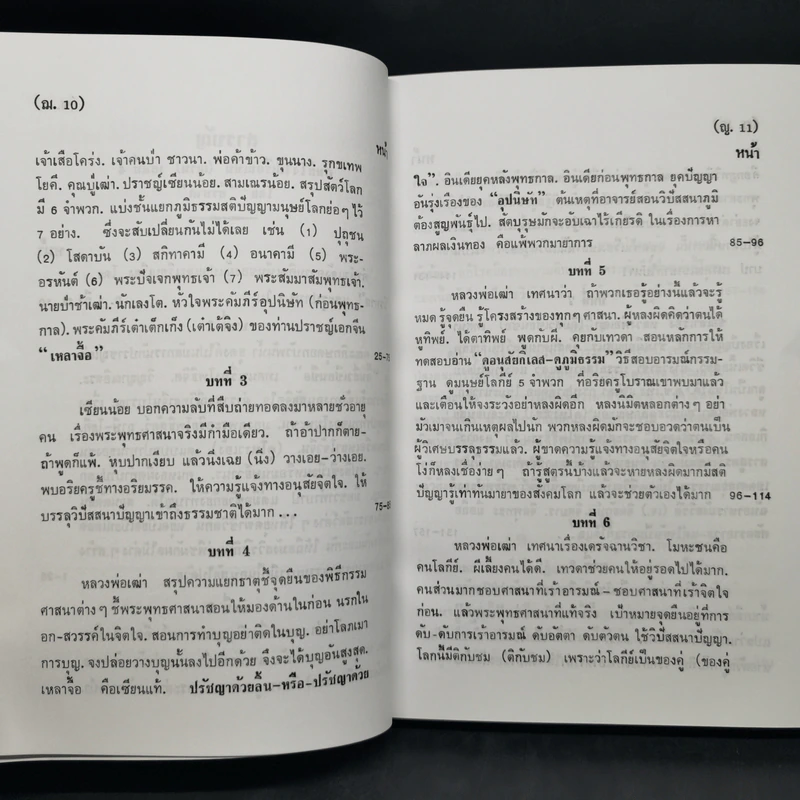 (ฌ. 10)
หน้า
เจ้าเสือโคร่ง. เจ้าคนป่า ชาวนา. พ่อค้าข้าว. ขุนนาง. รุกขเทพ
โยคี. คุณปู่เฒ่า. ปราชญ์เซียนน้อย. สามเณรน้อย. สรุปสัตว์โลก
มี 6 จำพวก. แบ่งชั้นแยกภูมิธรรมสติปัญญามนุษย์โลกย่อๆ ไว้
7 อย่าง. ซึ่งจะสับเปลี่ยนกันไม่ได้เลย เช่น (1) ปุถุชน
(2) โสดาบัน (3) สกิทาคามี (4) อนาคามี (5) พระ-
อรหันต์ (6) พระปัจเจกพุทธเจ้า (7) พระสัมมาสัมพุทธเจ้า.
นายป่าช้าเฒ่า. นักเลงโต. หัวใจพระคัมภีร์อุปนิษัท (ก่อนพุทธ-
กาล). พระคัมภีร์เต๋าเต็กเก็ง (เต๋าเต้จิง) ของท่านปราชญ์เอกจีน
“เหลาจื๊อ” 25-7
บทที่ 3
เซียนน้อย บอกความลับที่สืบถ่ายทอดลงมาหลายชั่วอายุ
คน เรื่องพระพุทธศาสนาจริงมีกำมือเดียว. ถ้าอ้าปากก็ตาย-
ถ้าพูดก็แพ้. หุบปากเงียบ แล้วนิ่งเฉย (นึ่ง) วางเอย-ว่างเอย.
พบอริยครูชี้ทางอริยมรรค. ให้ความรู้แจ้งทางอนุสัยจิตใจ. ให้
บรรลุวิปัสสนาปัญญาเข้าถึงธรรมชาติได้มาก ... 75-8
บทที่ 4
หลวงพ่อเฒ่า สรุปความแยกธาตุชี้จุดยืนของพิธีกรรม
ศาสนาต่างๆ ชี้พระพุทธศาสนาสอนให้มองด้านในก่อน นรกใน
อก-สวรรค์ในจิตใจ. สอนการทำบุญอย่าติดในบุญ. อย่าโลภเมา
การบุญ. จงปล่อยวางบุญนั้นลงไปอีกด้วย จึงจะได้บุญอันสูงสุด.
เหลาจื๊อ คือเซียนแท้. ปรัชญาด้วยลิ้น-หรือ-ปรัชญาด้วย
(ญ. 11)
หน้า
ใจ”. อินเดียยุคหลังพุทธกาล. อินเดียก่อนพุทธกาล ยุคปัญญา
อันรุ่งเรืองของ “อุปนิษัท” ต้นเหตุที่อาจารย์สอนวิปัสสนาภูมิ
ต้องสูญพันธุ์ไป. สัตบุรุษมักจะอับเฉาไร้เกียรติ ในเรื่องการหา
ลาภผลเงินทอง คือแพ้พวกมายาการ 85-96
บทที่ 5
หลวงพ่อเฒ่า เทศนาว่า ถ้าพวกเธอรู้อย่างนี้แล้วจะรู้
หมด รู้จุดยืน รู้โครงสร้างของทุกๆ ศาสนา. ผู้หลงผิดคิดว่าตนได้
หูทิพย์. ได้ตาทิพย์ พูดกับผี. คุยกับเทวดา สอนหลักการให้
ทดสอบอ่าน “ดูอนุสัยกิเลส-ดูภูมิธรรม” วิธีสอบอารมณ์กรรม-
ฐาน ดูมนุษย์โลกีย์ 5 จำพวก ที่อริยครูโบราณเขาพบมาแล้ว
และเตือนให้จงระวังอย่าหลงผิดอีก หลงนิมิตหลอกต่างๆ อย่า
มัวเมาจนเกินเหตุผลไปนัก พวกหลงผิดมักจะชอบอวดว่าตนเป็น
ผู้วิเศษบรรลุธรรมแล้ว. ผู้ขาดความรู้แจ้งทางอนุสัยจิตใจหรือคน
โง่ก็หลงเชื่อง่ายๆ ถ้ารู้สูตรนี้บ้างแล้วจะหายหลงผิดมากมีสติ
ปัญญารู้เท่าทันมายาของสังคมโลก แล้วจะช่วยตัวเองได้มาก 96-114
บทที่ 6
หลวงพ่อเฒ่า เทศนาเรื่องเดรัจฉานวิชา. โมหะชนคือ
คนโลกีย์. ผีเลี้ยงคนได้ดี. เทวดาช่วยคนให้อยู่รอดไปได้มาก.
คนส่วนมากชอบศาสนาที่เร้าอารมณ์-ชอบศาสนาที่เร้าจิตใจ
ก่อน. แล้วพระพุทธศาสนาที่แท้จริง เป้าหมายจุดยืนอยู่ที่การ
ดับ-ดับการเร้าอารมณ์ ดับอัตตา ดับตัวตน ใช้วิปัสสนาปัญญา.
โลกนี้มีติกับชม (ติกับชม) เพราะว่าโลกีย์เป็นของคู่ (ของคู่